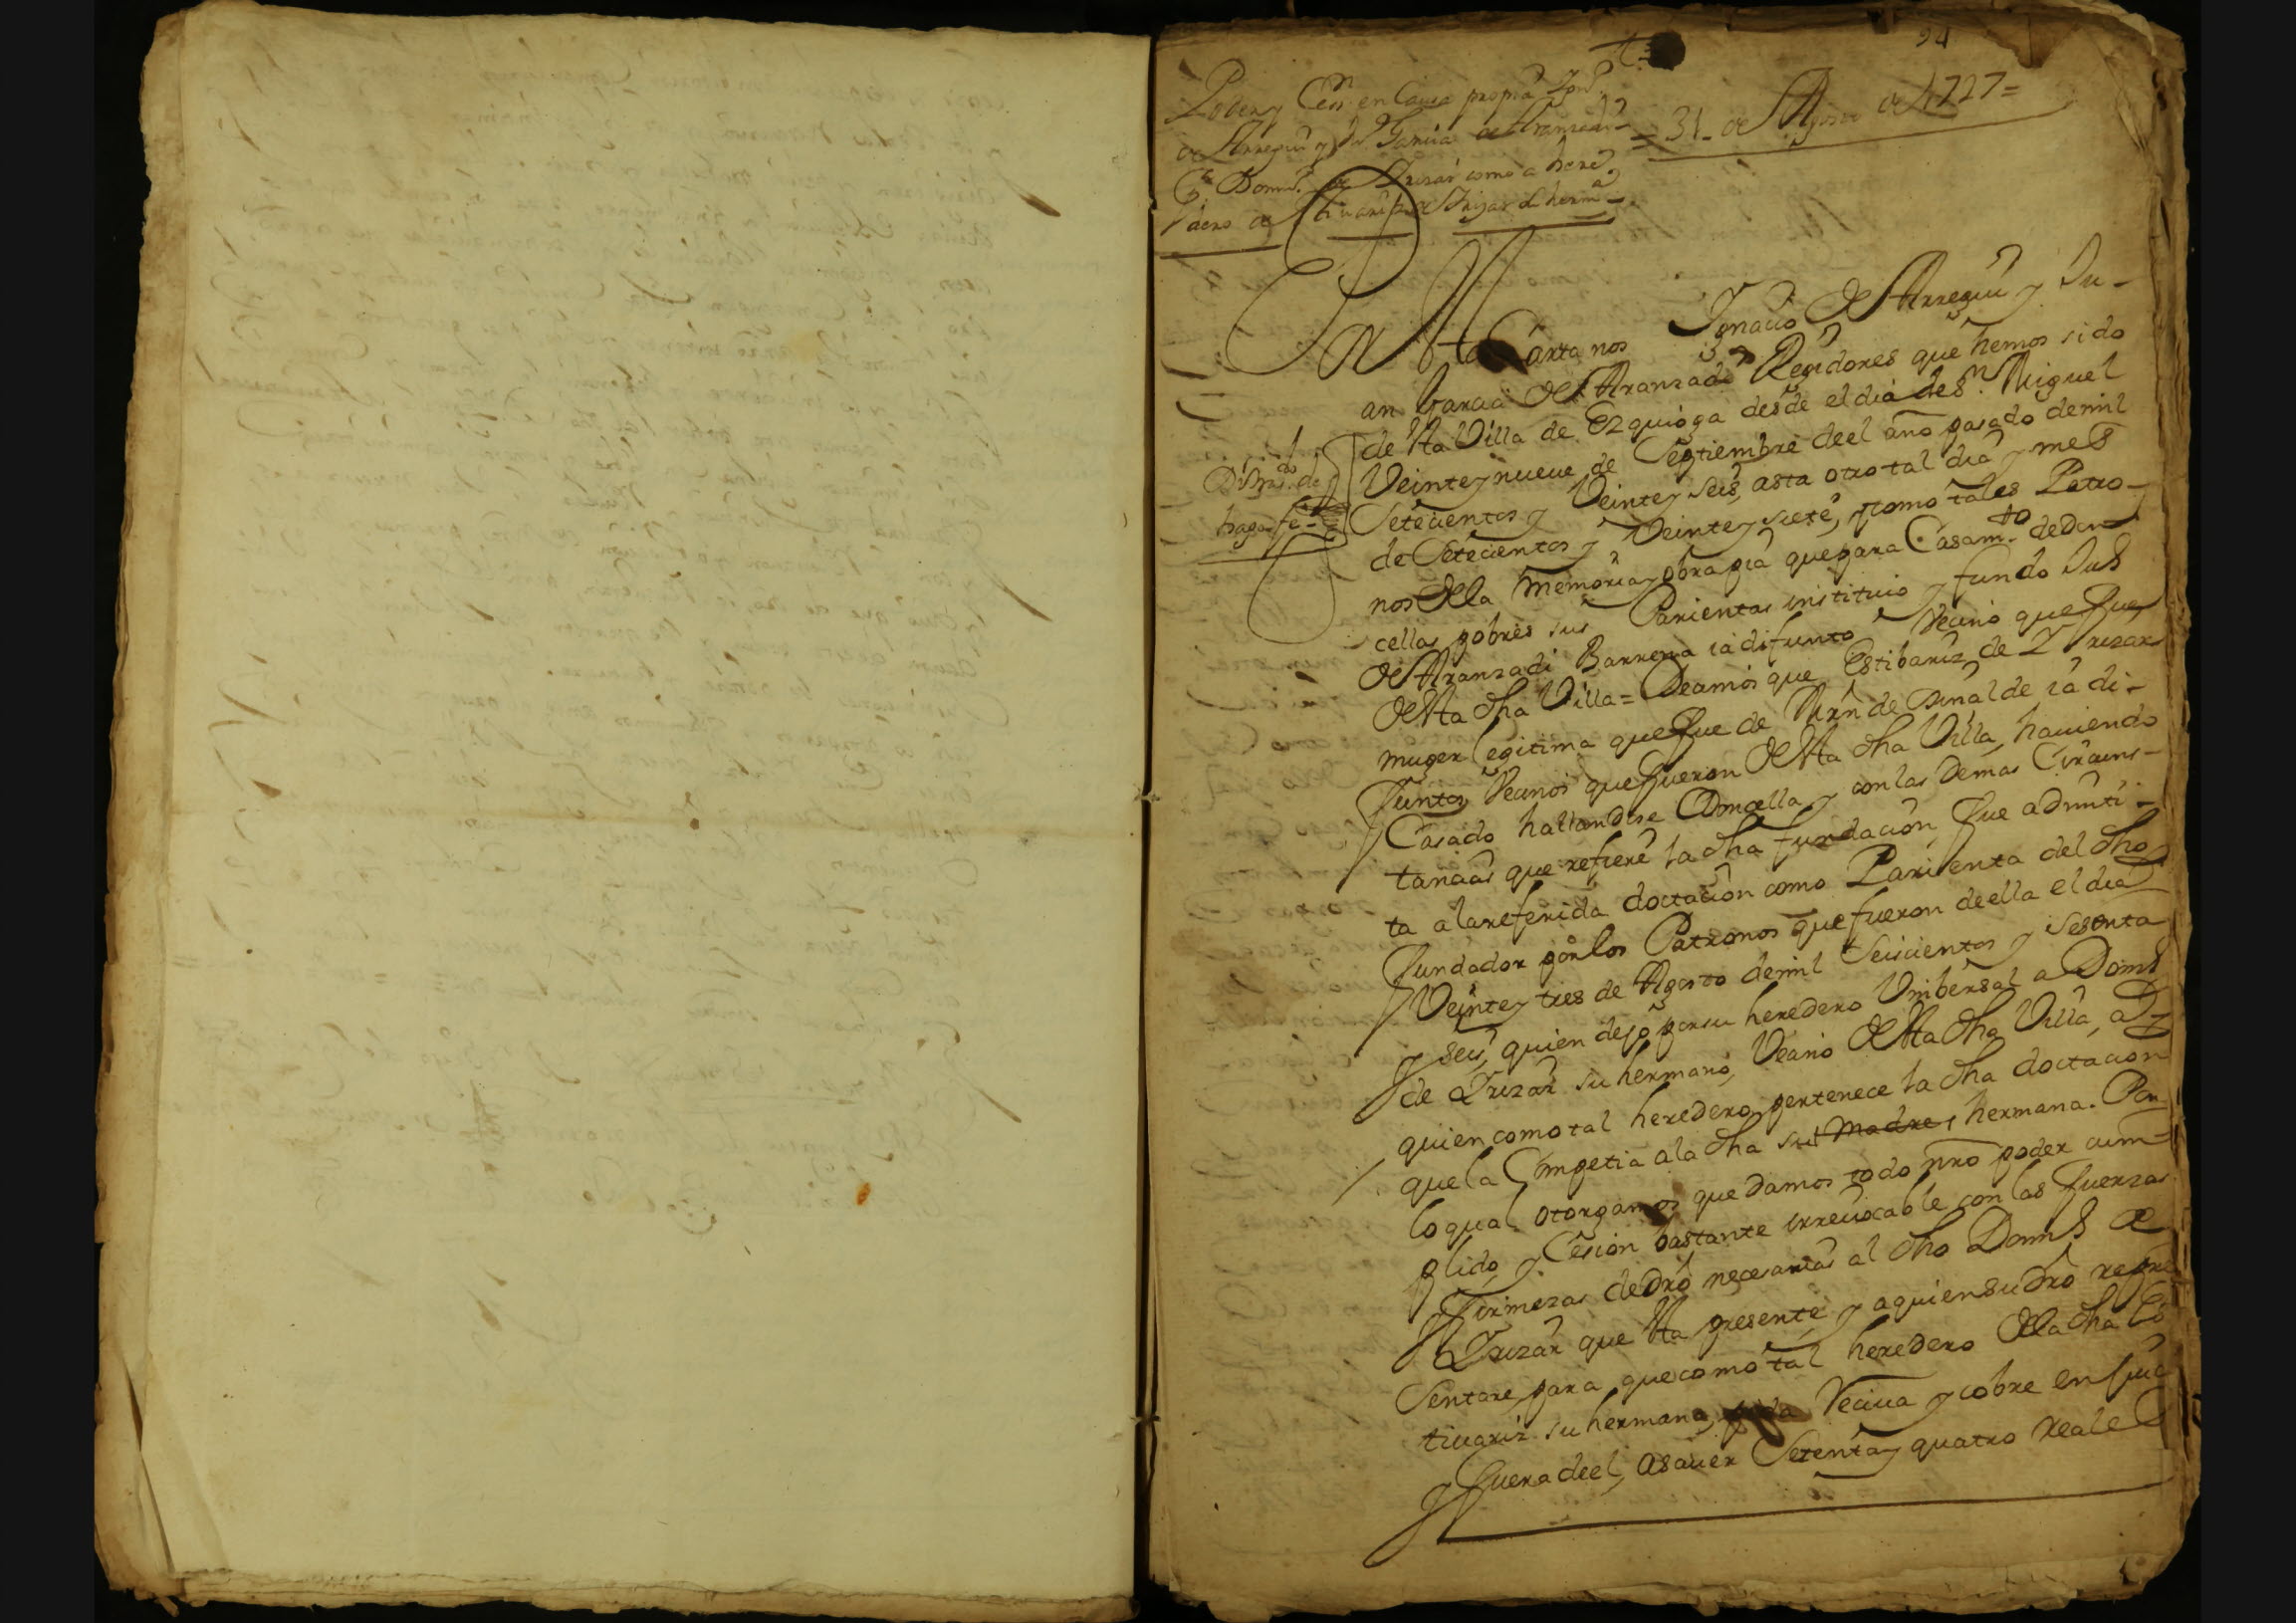 94
Poder y Cesn. en Causa propia Ign.o
de Arregui y Ju.n Garcia de Aranzadi
= 31 - de Agosto de 1727 =
Dom.s de Irizar como a here
dero de Estivariz de Irizar su herm.a
En Sta Carta nos Ignacio de Arregui y Ju-
an Garcia de Aranzadi Regidores que hemos sido
de Sta Villa de Ezquioga desde el dia de Sn. Miguel
Veinte y nueve de Septiembre de el año pasado de mil
Setecientos y Veinte y Seis, asta otro tal dia y mes
de Setecientos y Veinte y siete, y como tales Patro-
nos de la memoria y obra pia que para Casam.to de Don-
cellas pobres sus Parientas instituio y fundo Jua
de Aranzadi Barrena ia difunto Vecino que fue
de Sta dha Villa = Decimos que Estibariz de Irizar
muger legitima que fue de Mrn de Bidalde ia di-
funtos Vecinos que fueron de Sta dha Villa, haviendo
Casado hallandose Doncella y con las demas Circuns-
tancias que refiere la dha fundacion, fue admiti-
ta a la referida doctacion como Parienta del dho
fundador por los Patronos que fueron de ella el dia
Veinte y tres de Agosto de mil Seiscientos y Sesenta
y seis, quien dejo por su heredero Vnibersal a Doms
de Irizar su hermano, Vecino de Sta dha Villa, a
quien como tal heredero pertenece la dha doctacion
que la Competia a la dha su madre, hermana. Por
lo qual otorgamos que damos todo nro poder cum-
plido, y Cesion bastante irrevocable con las fuerzas
y firmezas de dro necesarias al dho Doms de
Irizar que Sta presente, y a quien su dro repre
Sentare, para que como tal heredero de la dha Es
tivariz su hermana, pida Veciva y cobre en Juic
y fuera de el, asaver Setenta y quatro Reales
haga fe